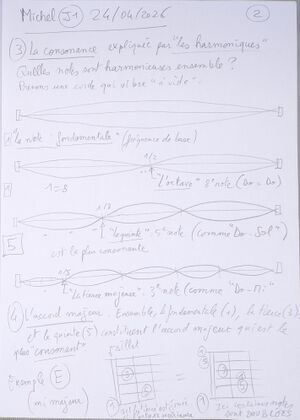 Michel J1 24/04/2026 2
3 La consonance expliquée par "les harmoniques"
Quelles notes sont harmonieuses ensemble ?
Prenons une corde qui vibre "à vide" =
1 "la note "fondamentale" (fréquence de base)
1/2
1 1=8 "L'octave" 8e note (Do = Do)
1/3
"la quinte" 5e note (comme "Do-Sol")
5 est la plus consonante
1/5
"La tierce majeure" 3e note (comme "Do-Mi"
4 L'accord majeur. Ensemble, la fondamentale (1), la tierce (3)
et la quinte (5) constituent l'accord majeur qui est le
plus "consonant"
Exemple E
(mi majeur)
Ici certaines notes
sont DOUBLÉES